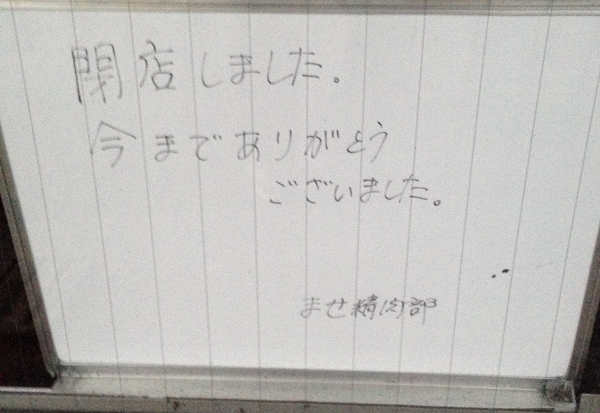 閉店しました。
今までありがとう
ございました。
ませ精肉部